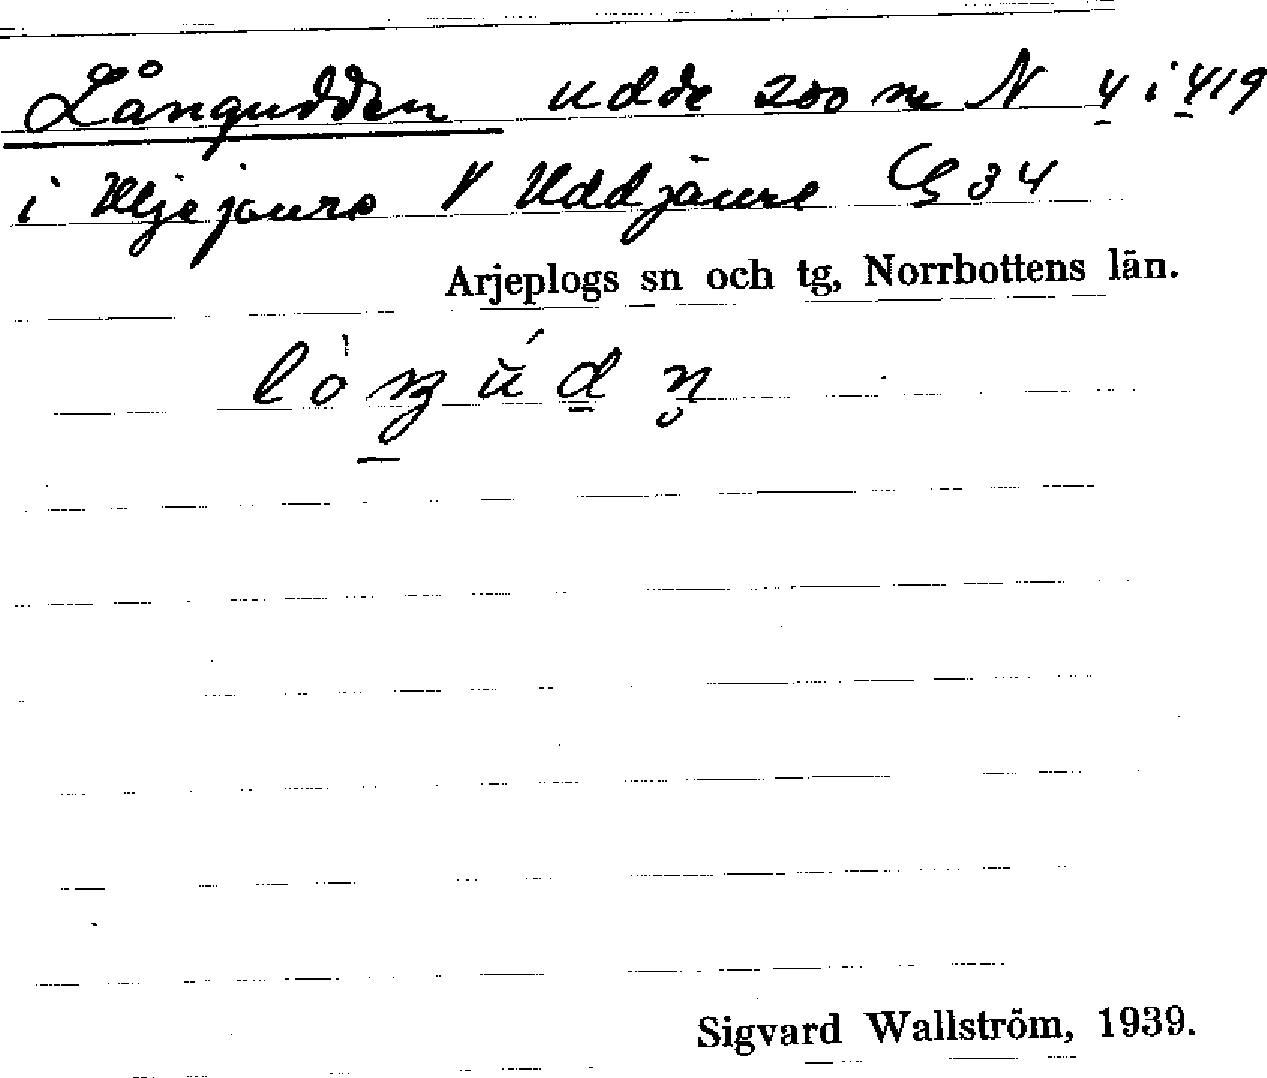 Långudden udde 200 m N 4 i 419
i V Uddjaure G 34
Arjeplogs sn och tg, Norrbottens län.
Sigvard Wallström, 1939.